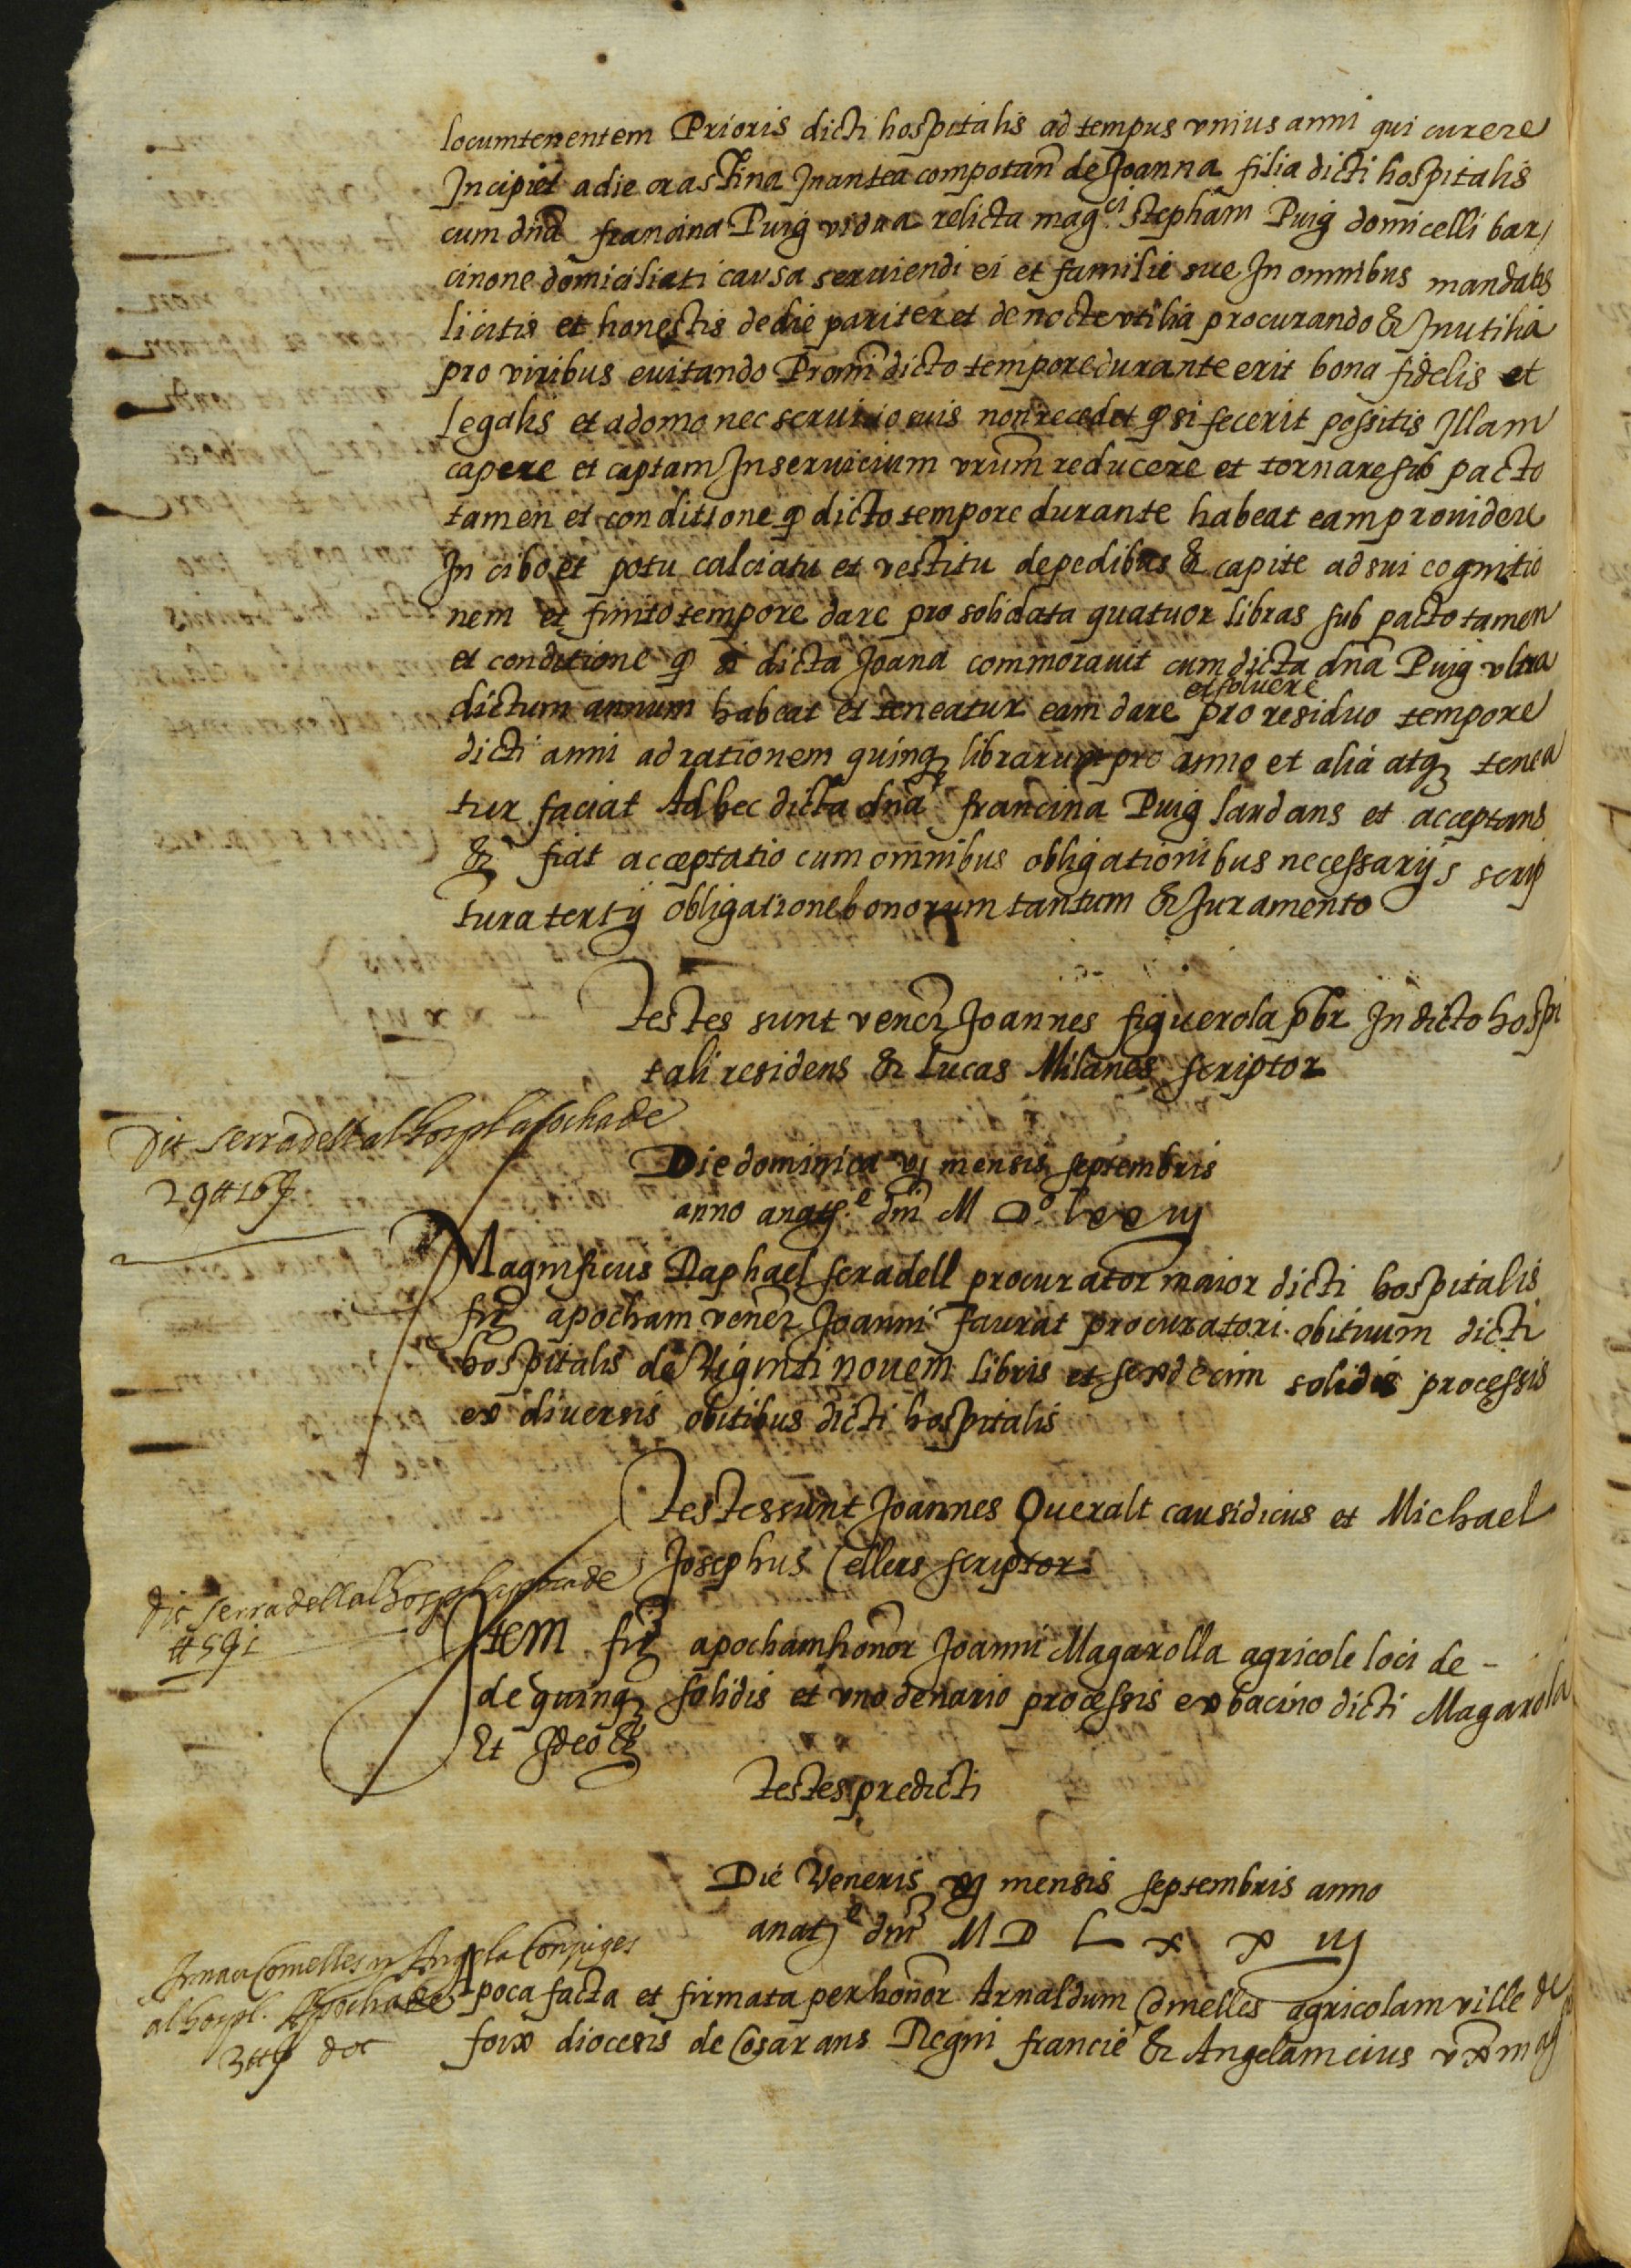 locumtenentem Prioris dicti hospitalis ad tempus vnius anni qui curere
Incipiet a die crastina Inantea compotan̄ de Joanna filia dicti hospitalis
cum dn̄a francina Puig vidua relicta mag.ci Stephani Puig domicelli bar/
cinone domiciliati causa seruiendi ei et familie sue In omnibus mandatis
licitis et honestis de die pariter et de nocte vtilia procurando & Inutilia
pro viribus euitando Promī dicto tempore durante erit bona fidelis et
legalis et a domo nec seruitio suis non recedet q̄ si fecerit possitis Illam
capere et captam In seruicium vrūm reducere et tornare sub pacto
tamen et conditione q̄ dicto tempore durante habeat eam prouidere
In cibo et potu calciatu et vestitu de pedibus & capite ad sui cognitio
nem et finito tempore dare pro solidata quatuor libras sub pacto tamen
et conditione q̄ si dicta Joana commorauit cum dicta dn̄a Puig vltra
et soluere
dictum annum habeat et teneatur eam dare pro residuo tempore
dicti anni ad rationem quinq̨ librarum pro anno et alia atq̨ tenea
tur faciat Ad hec dicta dn̄a francina Puig laudans et acceptans
& fiat acceptatio cum omnibus obligationibus necessarijs scrip
tura tertij obligatione bonorum tantum & Juramento
Testes sunt vener̄ Joannes figuerola pb̄r In dicto hospi
tali residens & Lucas Milanes scriptor
Dit Serradell al hospl apocha de
29 ℔ 16 ſ
Die dominica vj mensis septembris
anno a natj.e dn̄i M Do lxx iij
Magnificus Raphael Seradell procurator maior dicti hospitalis
fir̄ apocham vener̄ Joanni Faurat procuratori obituum dicti
hospitalis de Viginti nouem libris et sexdecim solidis processis
ex diuersis obitibus dicti hospitalis
Testes sunt Joannes Queralt causidicus et Michael
Josephus Cellers scriptor
Dit Serradell al hospl apocha de
℔ 5 ſ 1
Item fir̄ apocham honōr Joanni Magarolla agricole loci de -
de quinq̨ solidis et vno denario processis ex bacino dicti Magarola
Et Ideo &
Testes predicti
Die Veneris xj mensis septembris anno
a natj e dn̄i M D L x x iij
Arnau Comelles y Angela Coniuges
al hospl. Apocha de
3 ℔ ſ
Apoca facta et firmata per honōr Arnaldum Comelles agricolam ville de
foix diocesis de Cosarans Regni francie & Angelam eius vx̄m